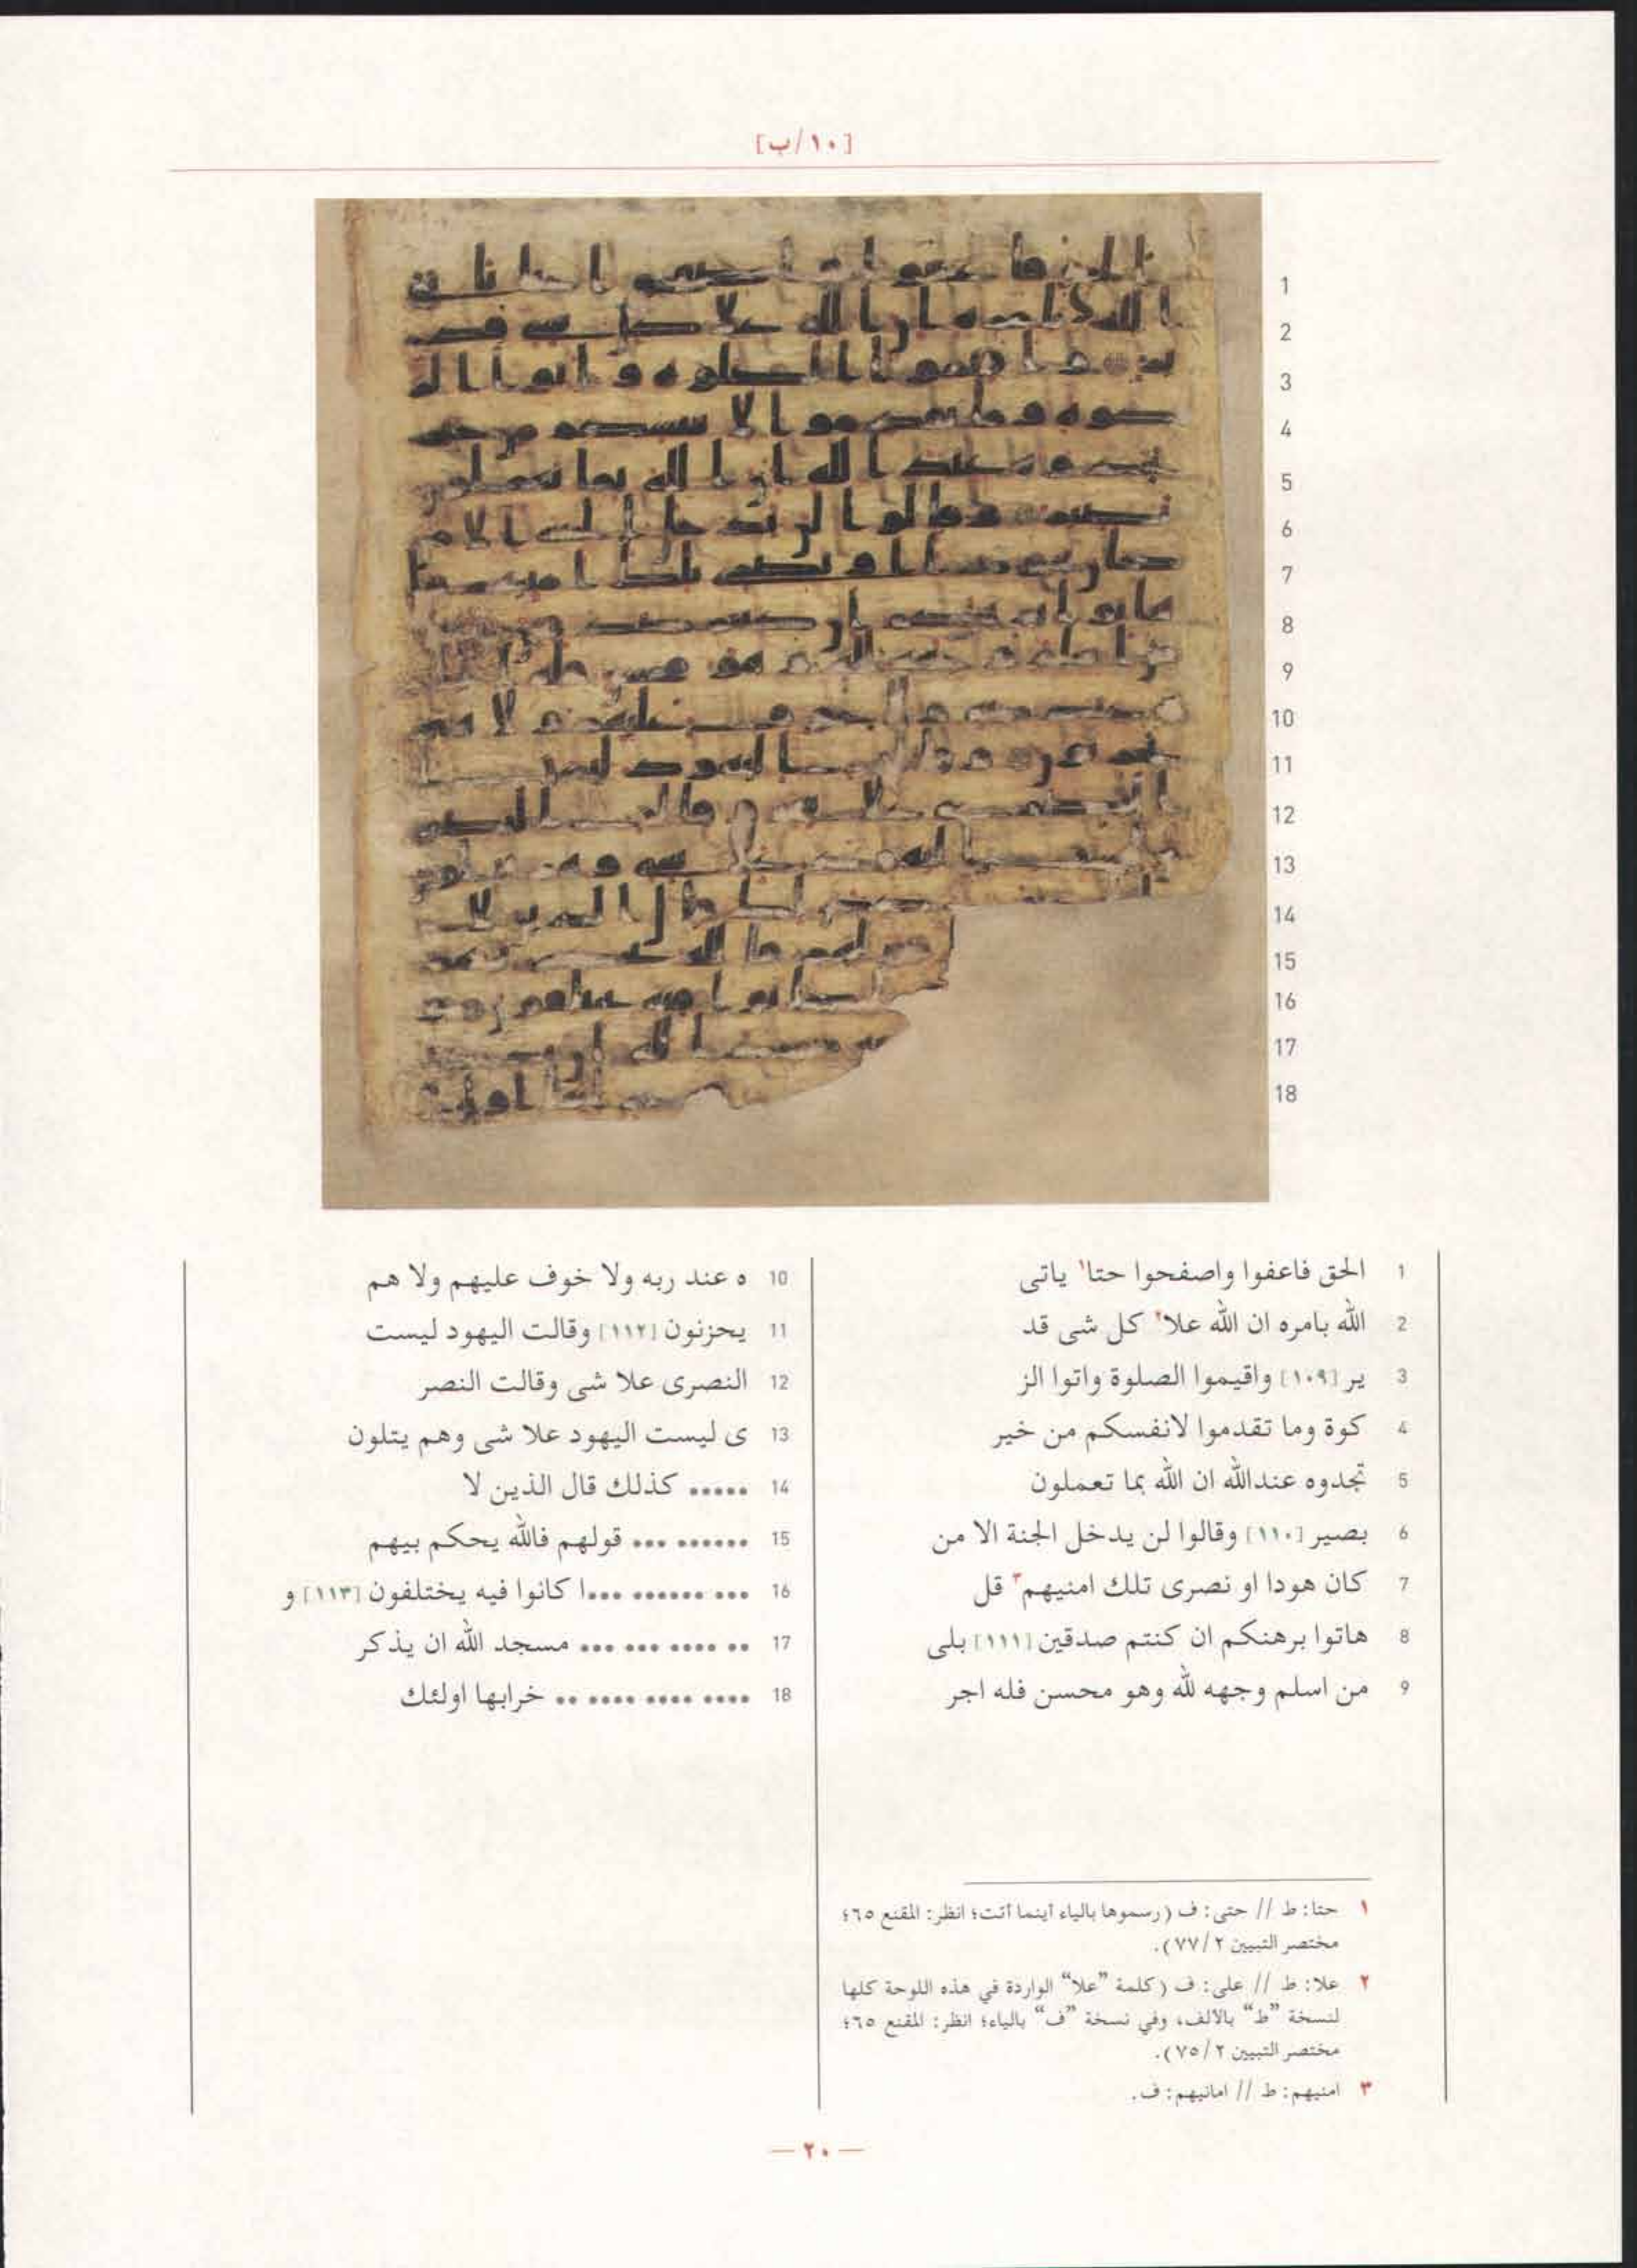 [١٠/ب]
1 الحق فاعفوا واصفحوا حتا١ ياتى
2 الله بامره ان الله علا٢ كل شى قد
3 ير [١٠٩] واقيموا الصلوة واتوا الز
4 كوة وما تقدموا لانفسكم من خير
5 تجدوه عندالله ان الله بما تعملون
6 بصير [١١٠] وقالوا لن يدخل الجنة الا من
7 كان هودا او نصرى تلك امنيهم٣ قل
8 هاتوا برهنكم ان كنتم صدقين [١١١] بلى
9 من اسلم وجهه لله وهو محسن فله اجر
10 ه عند ربه ولا خوف عليهم ولا هم
11 يحزنون [١١٢] وقالت اليهود ليست
12 النصرى علا شى وقالت النصر
13 ى ليست اليهود علا شى وهم يتلون
14 ..... كذلك قال الذين لا
15 ...... ... قولهم فالله يحكم بيهم
16 ... ...... ...ا كانوا فيه يختلفون [١١٣] و
17 .. .... ... ... مسجد الله ان يذكر
18 .... .... .... .. خرابها اولئك
١ حتا: ط // حتى: ف (رسموها بالياء أينما أتت؛ انظر: المقنع ٦٥؛
مختصر التبيين ٢/٧٧).
٢ علا: ط // على: ف (كلمة "علا" الواردة في هذه اللوحة كلها
لنسخة "ط" بالألف، وفي نسخة "ف" بالياء؛ انظر: المقنع ٦٥؛
مختصر التبيين ٢/٧٥).
٣ امنيهم: ط // امانيهم: ف.
— ٢٠ —